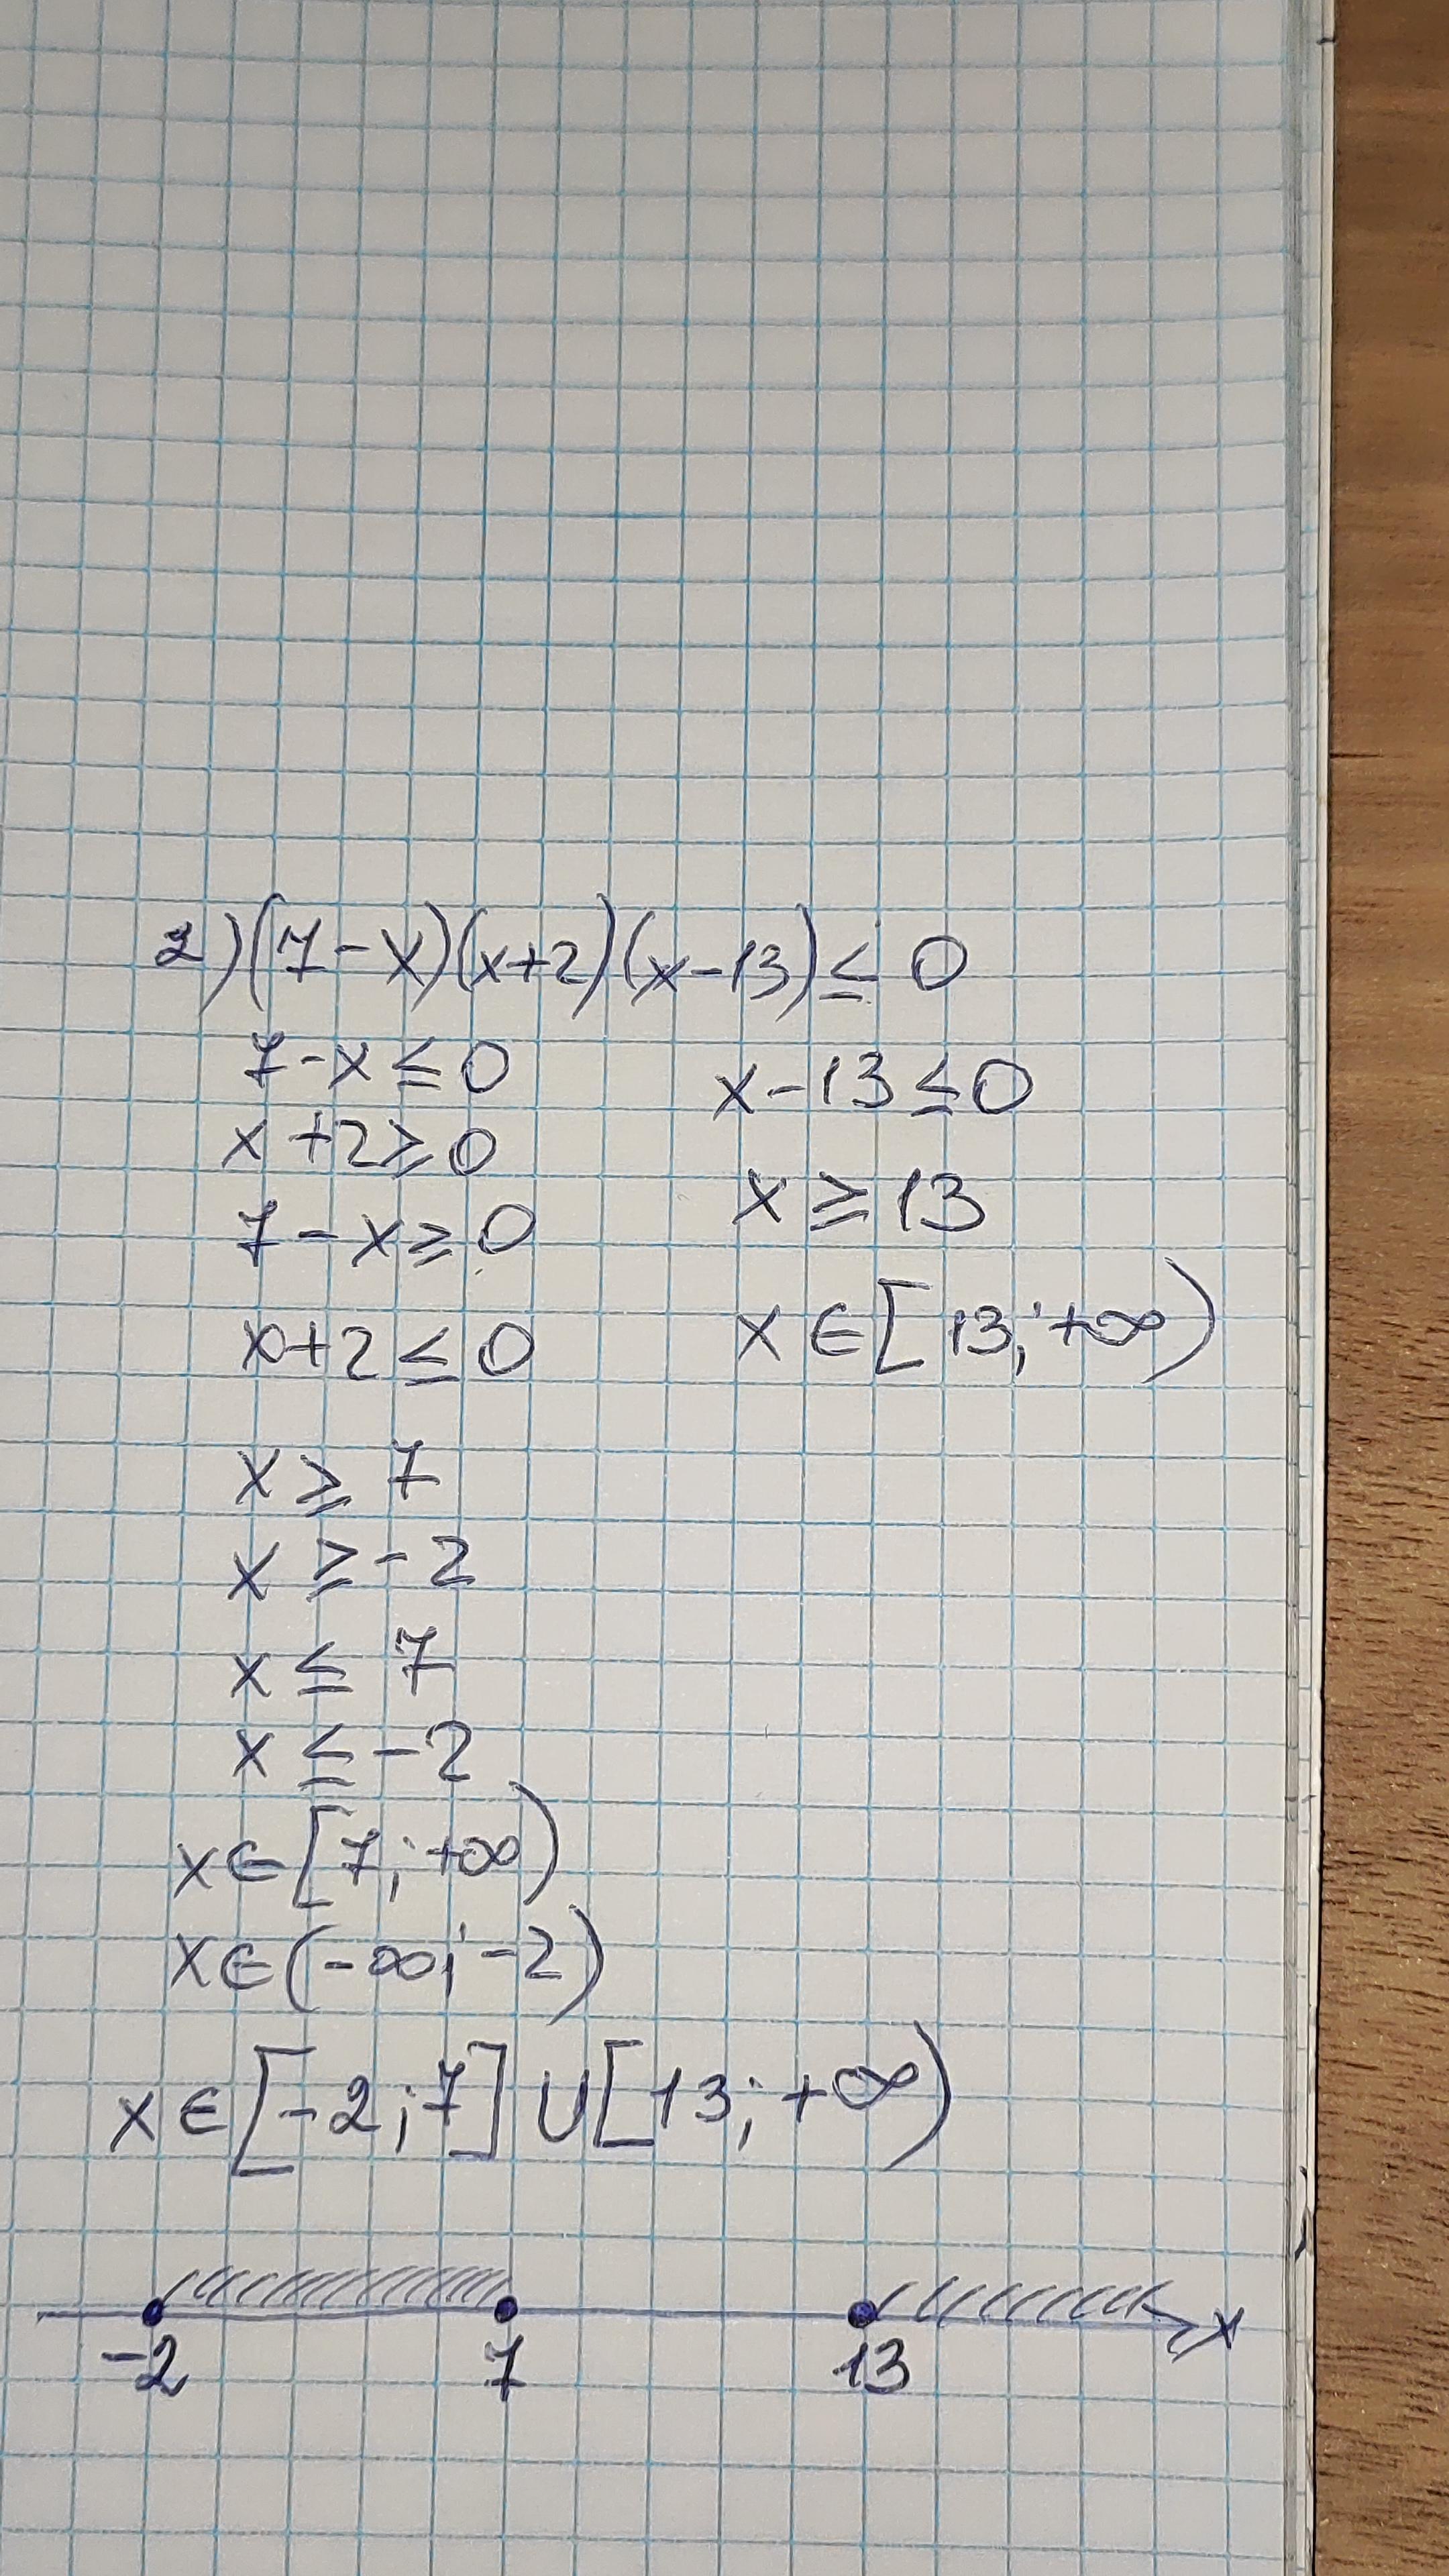 2) (7-x)(x+2)(x-13) ≤ 0
7-x ≤ 0
x+2 ≥ 0
7-x ≥ 0
x+2 ≤ 0
x ≥ 7
x ≥ -2
x ≤ 7
x ≤ -2
x ∈ [7; +∞)
x ∈ (-∞; -2)
x-13 ≤ 0
x ≥ 13
x ∈ [13; +∞)
x ∈ [-2; 7] ∪ [13; +∞)
-2 7 13 x